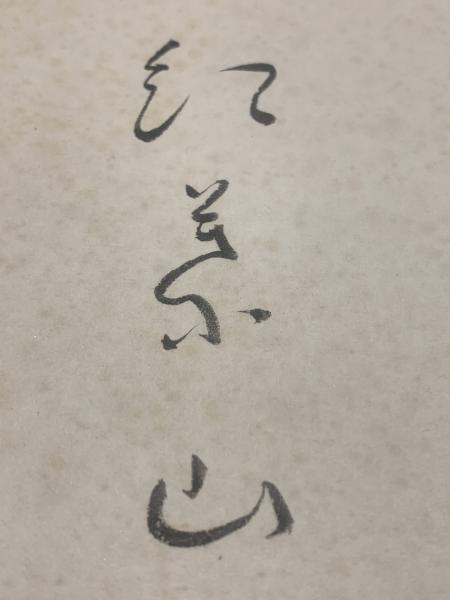 紅葉山